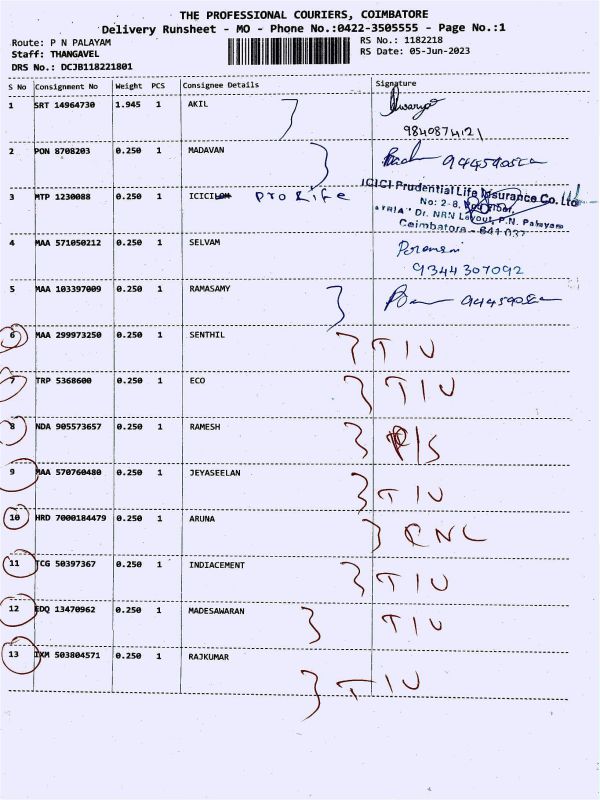 THE PROFESSIONAL COURIERS, COIMBATORE
Delivery Runsheet - MO - Phone No.:0422-3505555 - Page No.:1
Route: P N PALAYAM RS No.: 1182218
Staff: THANGAVEL RS Date: 05-Jun-2023
DRS No.: DCJB118221801
S No Consignment No Weight PCS Consignee Details Signature
1 SRT 14964730 1.945 1 AKIL
9840874121
2 PON 8708203 0.250 1 MADAVAN
3 MTP 1230088 0.250 1 ICICI Pro Life
ICICI Prudential Life Insurance Co. Ltd
No: 2-8, Floor,
"ATRIA" Dr. NRN Layout, P.N. Palayam
Coimbatore - 641 037
4 MAA 571050212 0.250 1 SELVAM
9344307092
5 MAA 103397009 0.250 1 RAMASAMY
6 MAA 299973250 0.250 1 SENTHIL TIU
7 TRP 5368600 0.250 1 ECO TIU
8 NDA 905573657 0.250 1 RAMESH P/S
9 MAA 570760480 0.250 1 JEYASEELAN TIU
10 HRD 7000184479 0.250 1 ARUNA CNC
11 TCG 50397367 0.250 1 INDIACEMENT TIU
12 EDQ 13470962 0.250 1 MADESAWARAN TIU
13 IXM 503804571 0.250 1 RAJKUMAR TIU